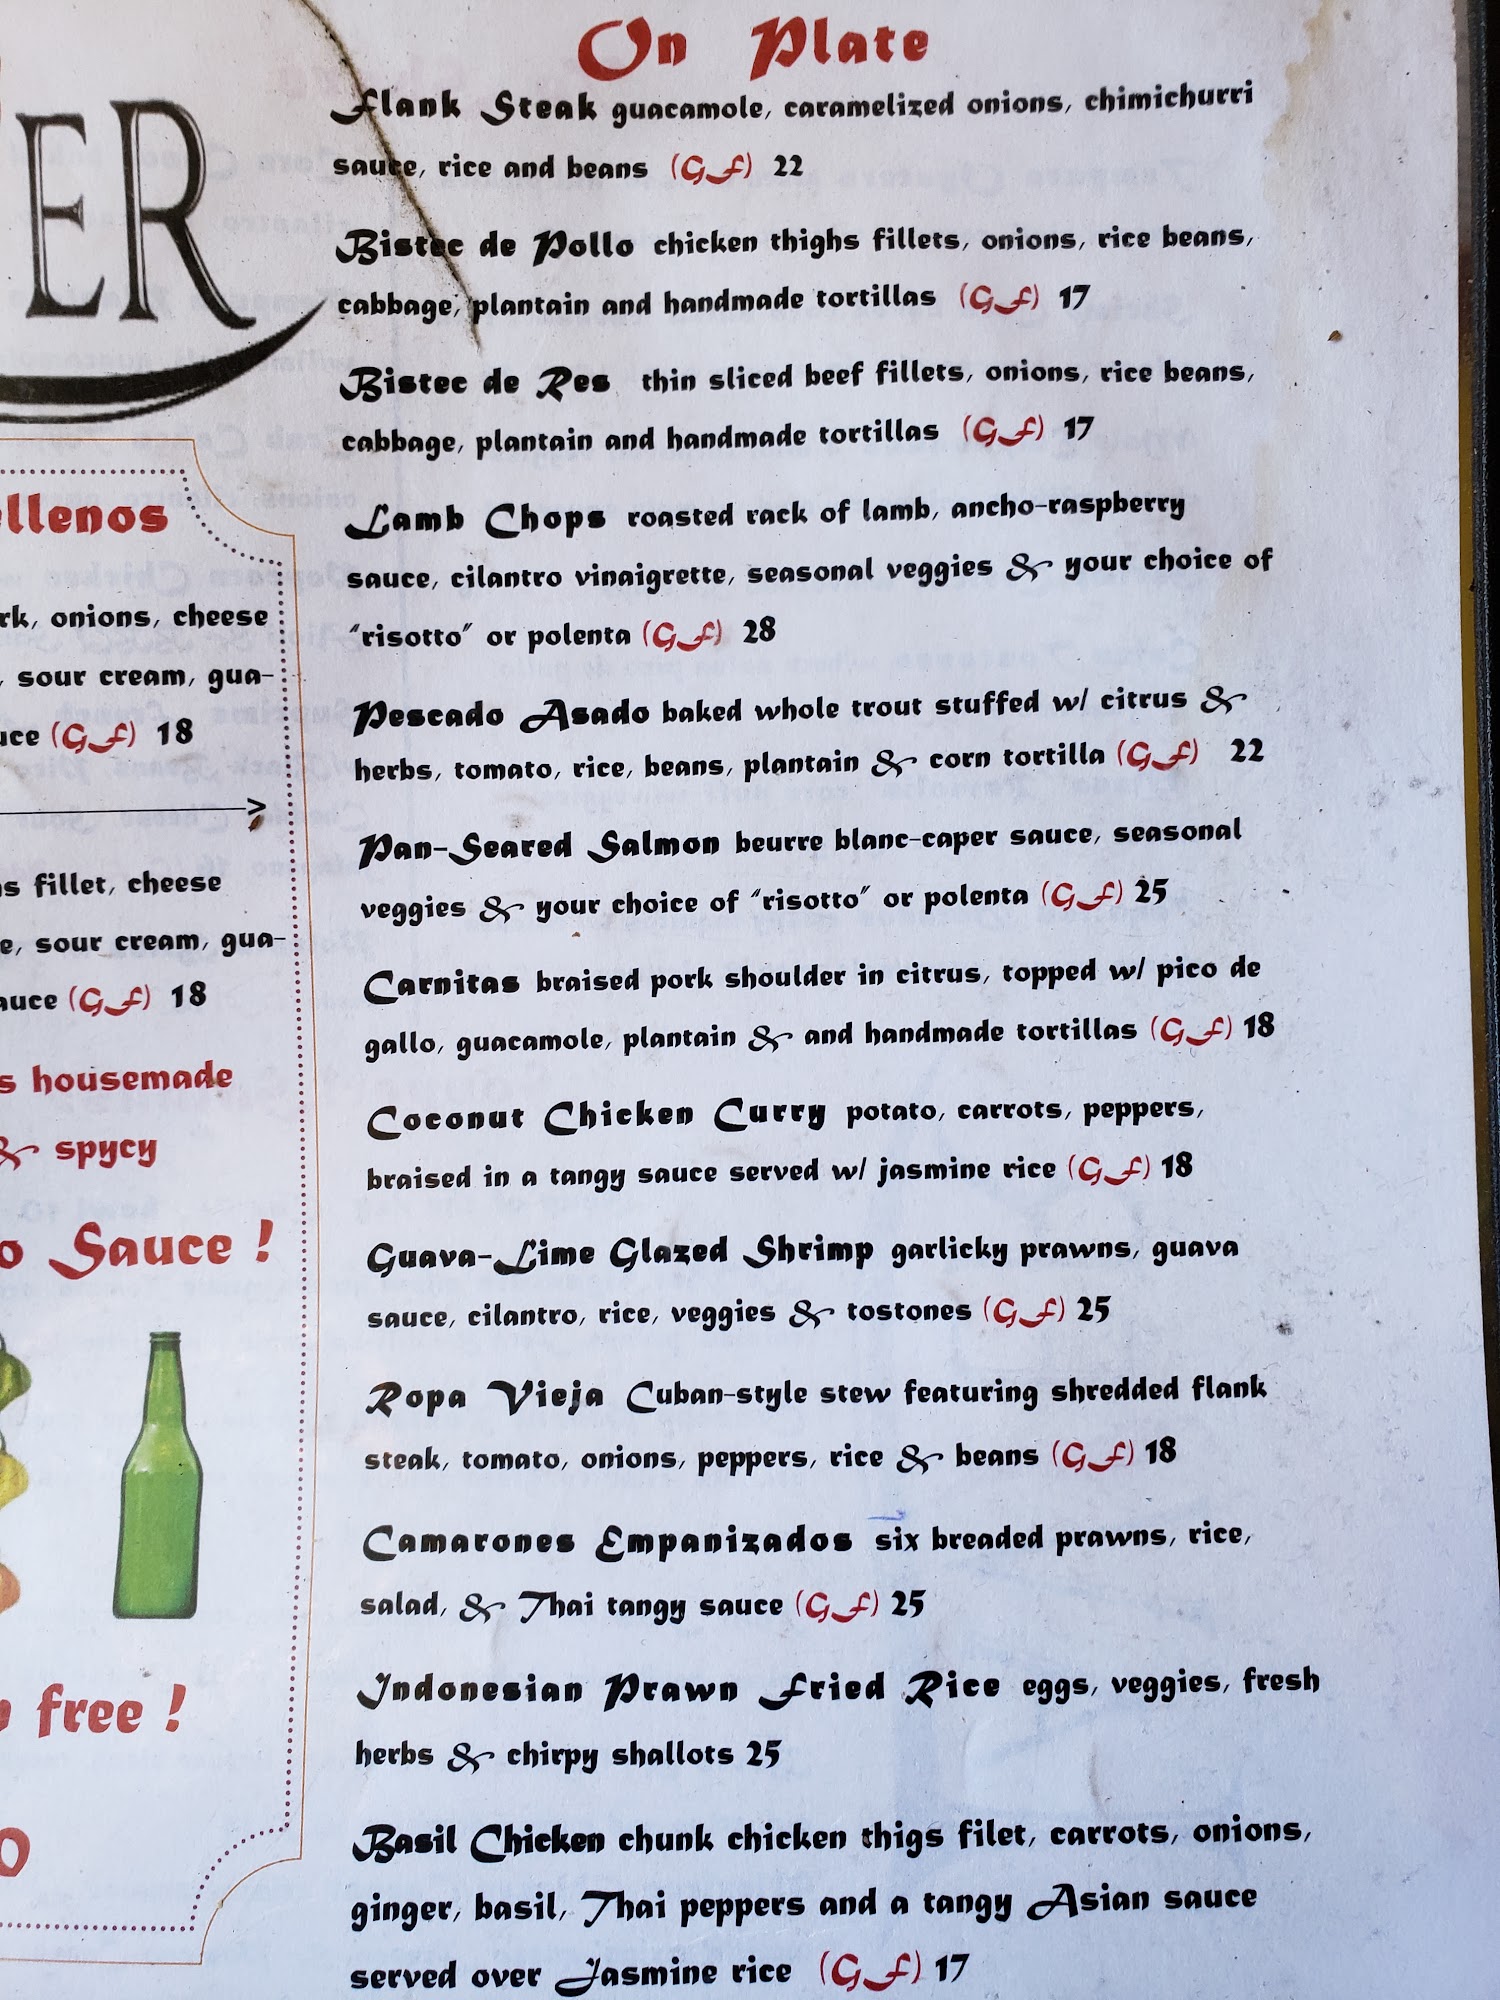 ER
On Plate
Flank Steak guacamole, caramelized onions, chimichurri
sauce, rice and beans (GF) 22
Bistec de Pollo chicken thighs fillets, onions, rice beans,
cabbage, plantain and handmade tortillas (GF) 17
Bistec de Res thin sliced beef fillets, onions, rice beans,
cabbage, plantain and handmade tortillas (GF) 17
Lamb Chops roasted rack of lamb, ancho-raspberry
sauce, cilantro vinaigrette, seasonal veggies & your choice of
"risotto" or polenta (GF) 28
Pescado Asado baked whole trout stuffed w/ citrus &
herbs, tomato, rice, beans, plantain & corn tortilla (GF) 22
Pan-Seared Salmon beurre blanc-caper sauce, seasonal
veggies & your choice of "risotto" or polenta (GF) 25
Carnitas braised pork shoulder in citrus, topped w/ pico de
gallo, guacamole, plantain & and handmade tortillas (GF) 18
Coconut Chicken Curry potato, carrots, peppers,
braised in a tangy sauce served w/ jasmine rice (GF) 18
Guava-Lime Glazed Shrimp garlicky prawns, guava
sauce, cilantro, rice, veggies & tostones (GF) 25
Ropa Vieja Cuban-style stew featuring shredded flank
steak, tomato, onions, peppers, rice & beans (GF) 18
Camarones Empanizados six breaded prawns, rice,
salad, & Thai tangy sauce (GF) 25
Indonesian Prawn Fried Rice eggs, veggies, fresh
herbs & chirpy shallots 25
Basil Chicken chunk chicken thigs filet, carrots, onions,
ginger, basil, Thai peppers and a tangy Asian sauce
served over Jasmine rice (GF) 17
ellenos
rk, onions, cheese
, sour cream, gua-
uce (GF) 18
s fillet, cheese
e, sour cream, gua-
auce (GF) 18
s housemade
& spycy
o Sauce !
free !
O